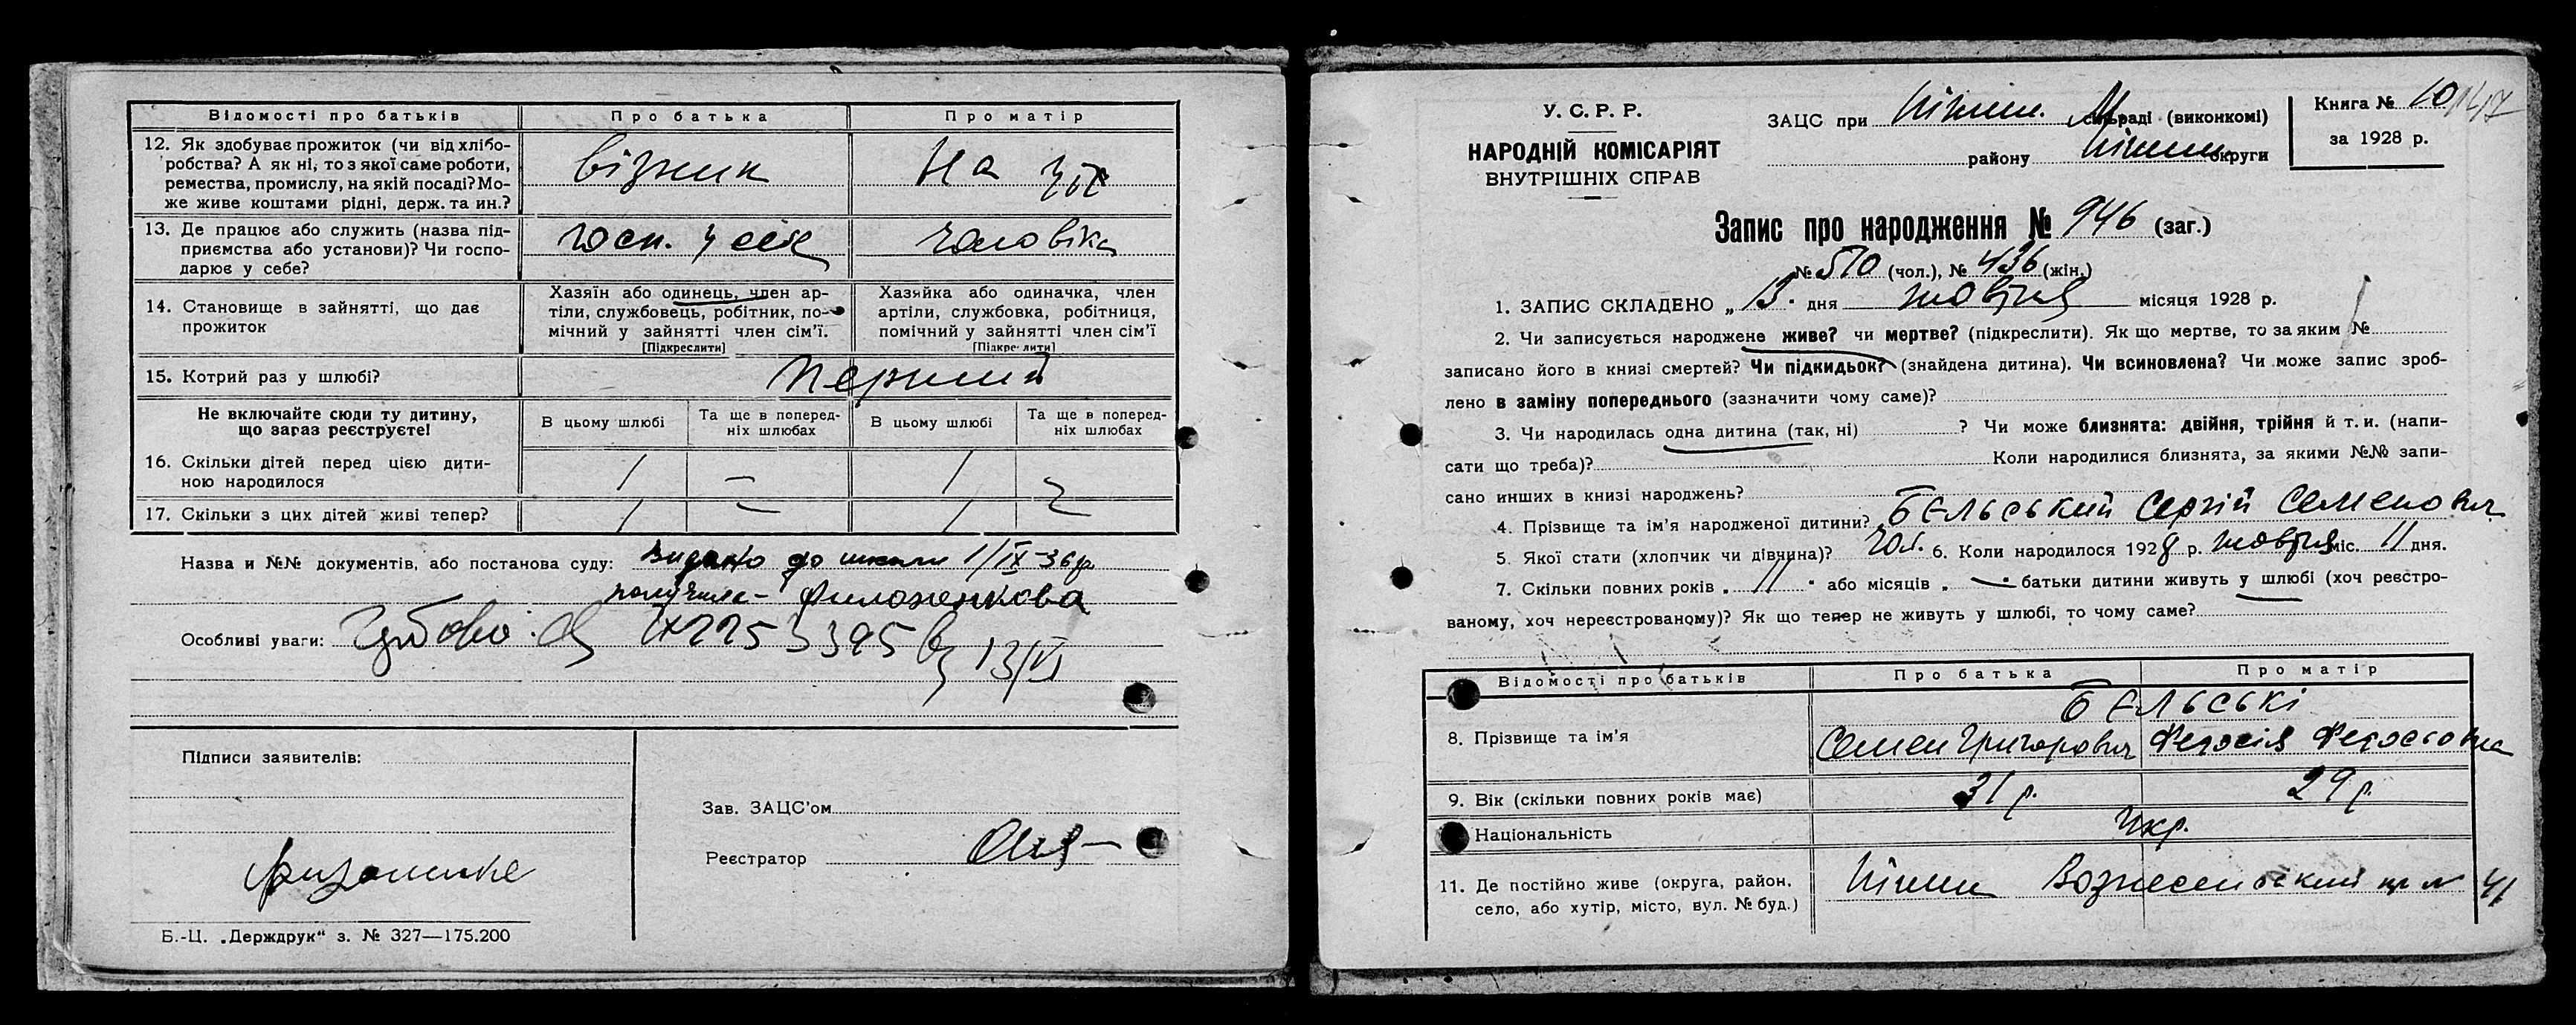 Відомості про батьків Про батька Про матір
12. Як здобуває прожиток (чи від хлібо-
робства? А як ні, то з якої саме роботи,
ремества, промислу, на якій посаді? Мо-
же живе коштами рідні, держ. та ин.?
візник На
13. Де працює або служить (назва під-
приємства або установи)? Чи госпо-
дарює у себе?
госп. у себе чоловіка
14. Становище в зайнятті, що дає
прожиток
Хазяїн або одинець, член ар-
тіли, службовець, робітник, по-
мічний у зайнятті член сім'ї.
[Підкреслити]
Хазяйка або одиначка, член
артіли, службовка, робітниця,
помічний у зайнятті член сім'ї
[Підкреслити]
15. Котрий раз у шлюбі? перший
Не включайте сюди ту дитину,
що зараз реєструєте!
В цьому шлюбі
Та ще в поперед-
ніх шлюбах
В цьому шлюбі
Та ще в поперед-
ніх шлюбах
16. Скільки дітей перед цією дити-
ною народилося
1 — 1
17. Скільки з цих дітей живі тепер? 1 — 1
Назва и №№ документів, або постанова суду: видано до школи 1/IX-36р
Филоненкова
Особливі уваги: 13/VI
Підписи заявителів:
Зав. ЗАЦС'ом
Реєстратор
Б.-Ц. „Держдрук“ з. № 327—175.200
У. С. Р. Р.
НАРОДНІЙ КОМІСАРІЯТ
ВНУТРІШНІХ СПРАВ
ЗАЦС при Ніжин. М раді (виконкомі)
району Ніжин округи
Книга № 10
за 1928 р.
Запис про народження № 946 (заг.)
№ 510 (чол.), № 436 (жін.)
1. ЗАПИС СКЛАДЕНО „ 13. дня жовтня місяця 1928 р.
2. Чи записується народжене живе? чи мертве? (підкреслити). Як що мертве, то за яким №
записано його в книзі смертей? Чи підкидьок? (знайдена дитина). Чи всиновлена? Чи може запис зроб-
лено в заміну попереднього (зазначити чому саме)?
3. Чи народилась одна дитина (так, ні) ? Чи може близнята: двійня, трійня й т. и. (напи-
сати що треба)? Коли народилися близнята, за якими №№ запи-
сано инших в книзі народжень?
4. Прізвище та ім'я народженої дитини? Бєльський Сергій Семенович
5. Якої стати (хлопчик чи дівчина)? чол. 6. Коли народилося 1928 р. жовтня міс. 11 дня.
7. Скільки повних років „ 11 “ або місяців „ — “ батьки дитини живуть у шлюбі (хоч реєстро-
ваному, хоч нереєстрованому)? Як що тепер не живуть у шлюбі, то чому саме?
Відомості про батьків Про батька Про матір
Бєльські
8. Прізвище та ім'я Семен Григорович Федосія Федосіовна
9. Вік (скільки повних років має) 31 р. 29 р.
Національність Укр.
11. Де постійно живе (округа, район,
село, або хутір, місто, вул. № буд.)
Ніжин Вознесенський пр № 41